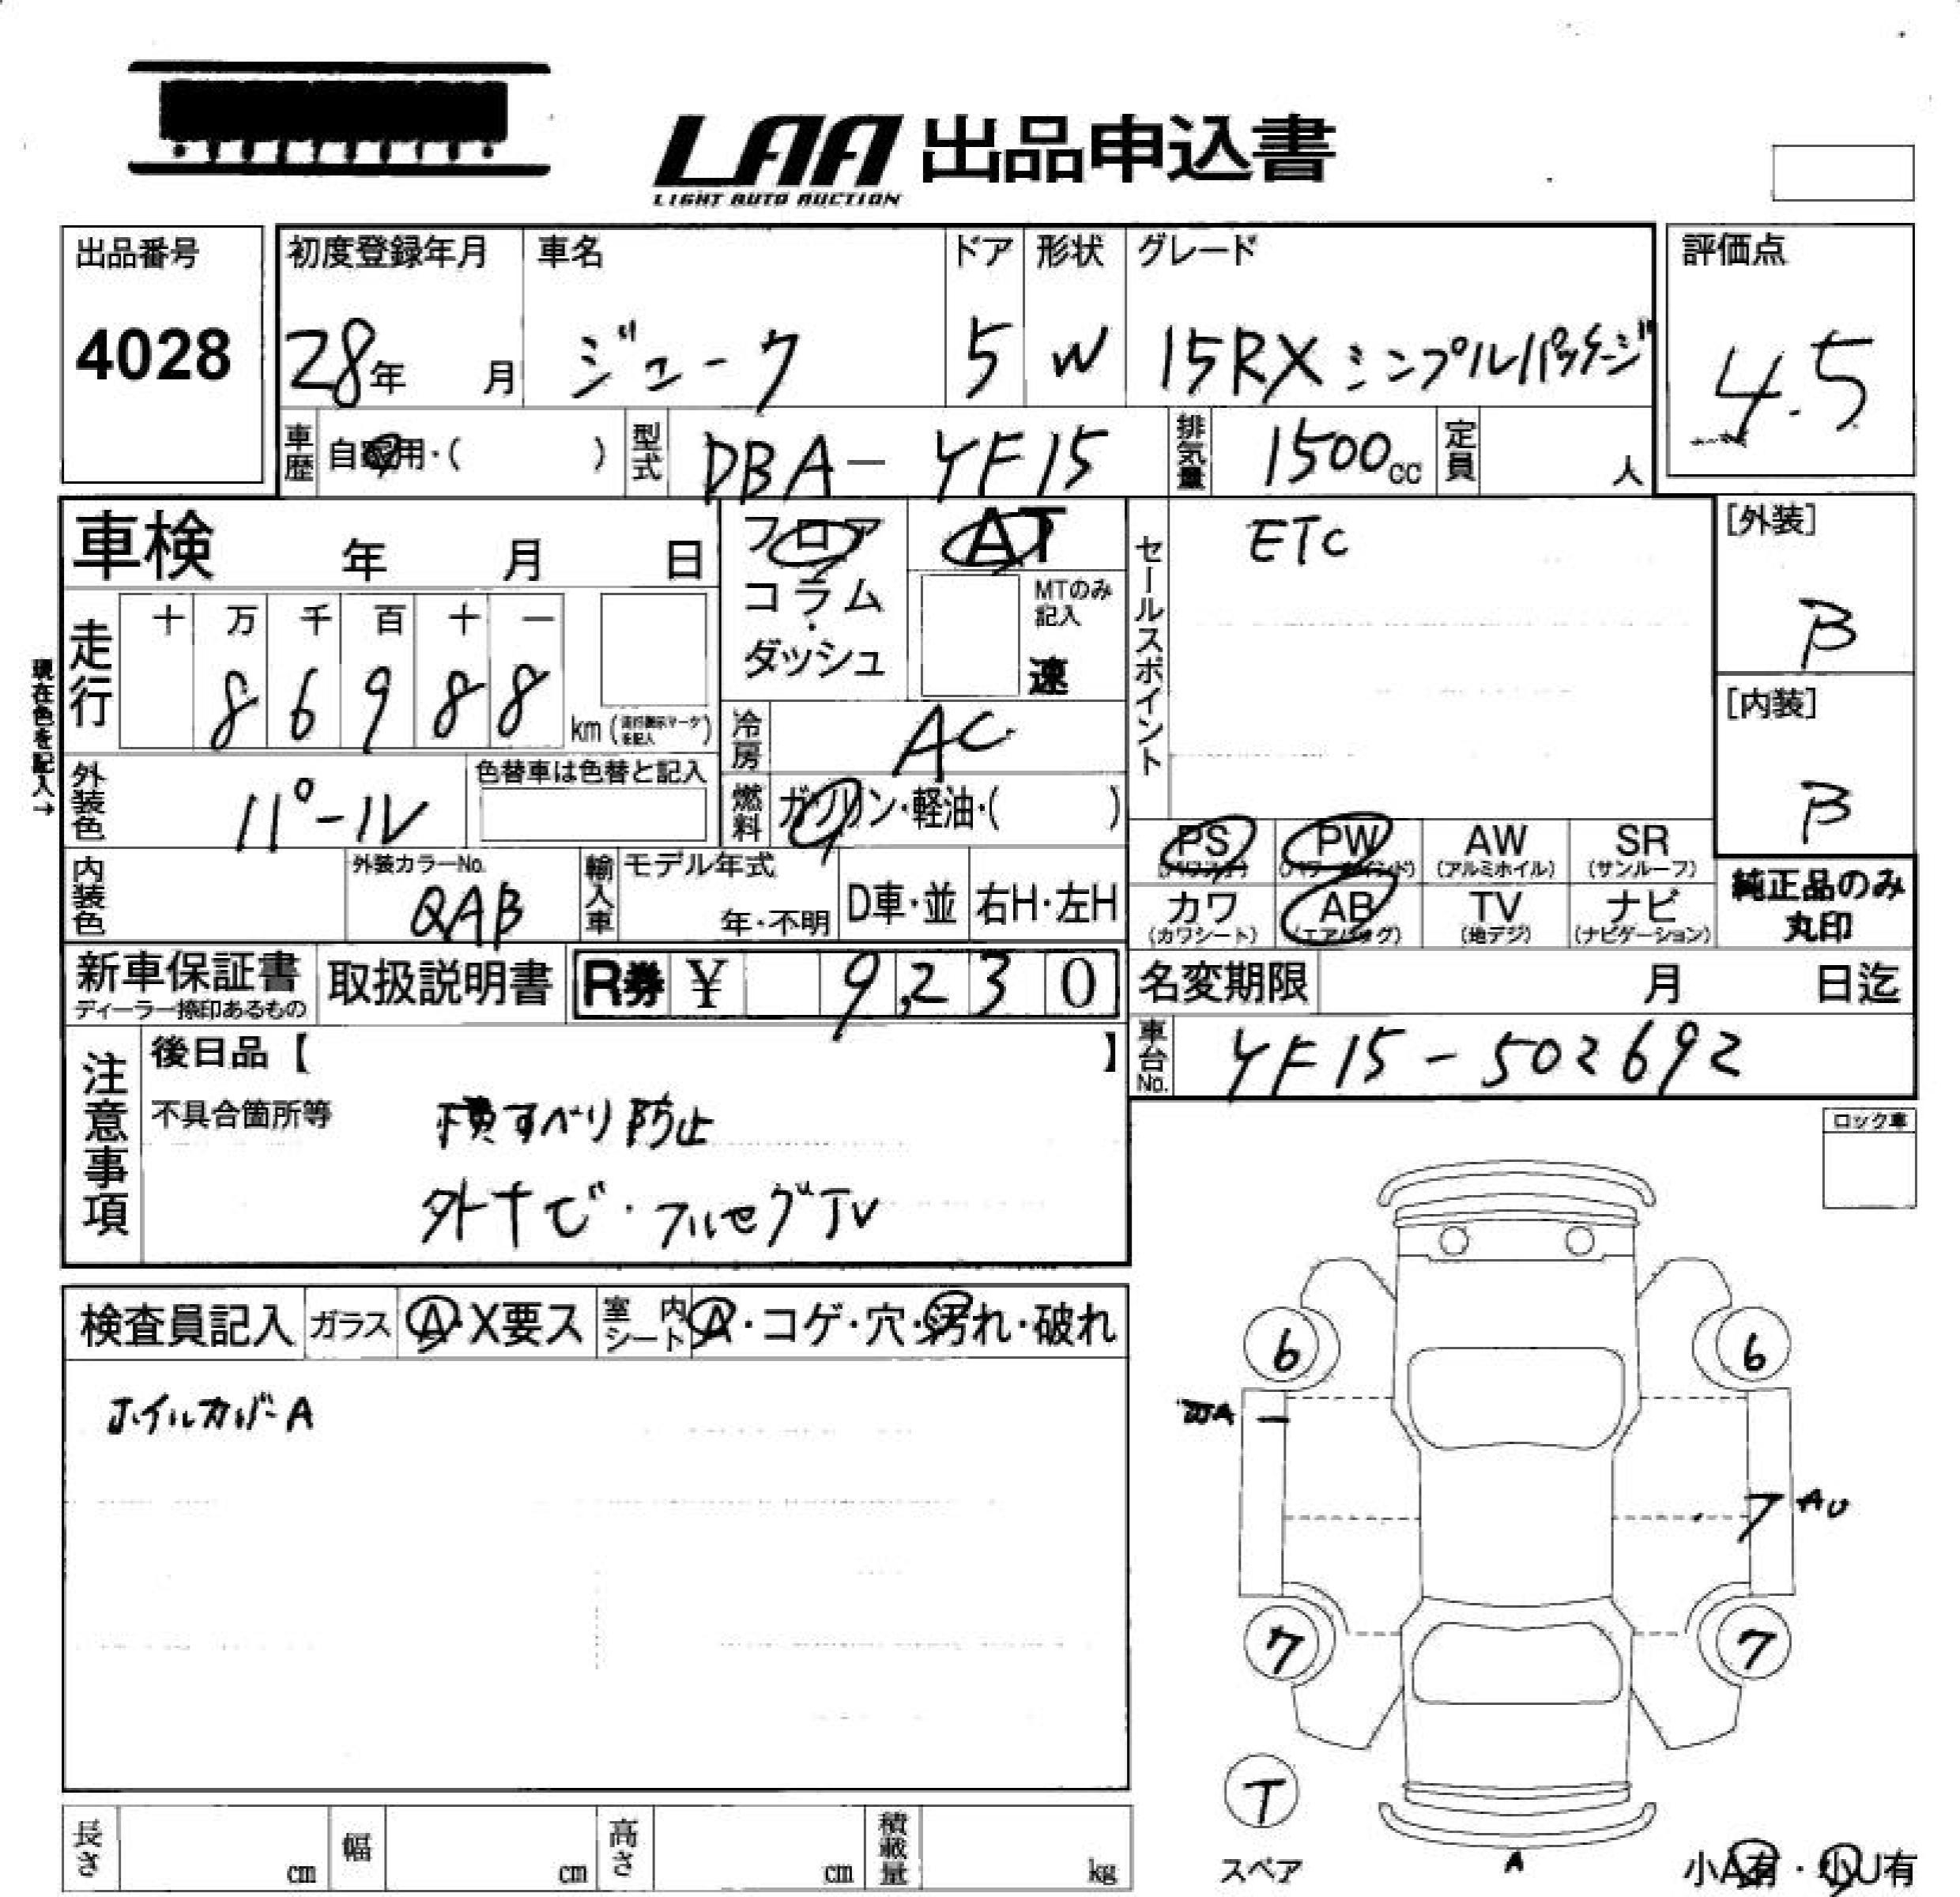 LAA 出品申込書
LIGHT AUTO AUCTION
出品番号
4028
初度登録年月
28年 月
車名
ジューク
ドア
5
形状
W
グレード
15RX シンプルパッケージ
評価点
4.5
車歴
自家用・( )
型式
DBA-YF15
排気量
1500cc
定員
人
車検 年 月 日
フロア
コラム
・
ダッシュ
AT
MTのみ
記入
速
セールスポイント
ETC
[外装]
B
[内装]
B
現在色を記入→
走行
十 万 千 百 十 一
8 6 9 8 8
km (走行表示マークを記入)
冷房
AC
外装色
パール
色替車は色替と記入
燃料
ガソリン・軽油・( )
PS
PW
(パワーウインド)
AW
(アルミホイル)
SR
(サンルーフ)
カワ
(カワシート)
AB
(エアバッグ)
TV
(地デジ)
ナビ
(ナビゲーション)
純正品のみ
丸印
内装色
外装カラーNo.
QAB
輸入車
モデル年式
年・不明
D車・並
右H・左H
新車保証書
ディーラー捺印あるもの
取扱説明書
R券 ¥ 9,230
名変期限 月 日迄
車台No.
YF15-502692
注意事項
後日品【 】
不具合箇所等
横すべり防止
外ナビ・フルセグTV
ロック車
検査員記入
ガラス
A・X要ス
室内シート
A・コゲ・穴・汚れ・破れ
ホイルカバーA
6
6
A
フ AU
7
7
T
スペア
A
小A有・小U有
長さ cm
幅 cm
高さ cm
積載量 kg